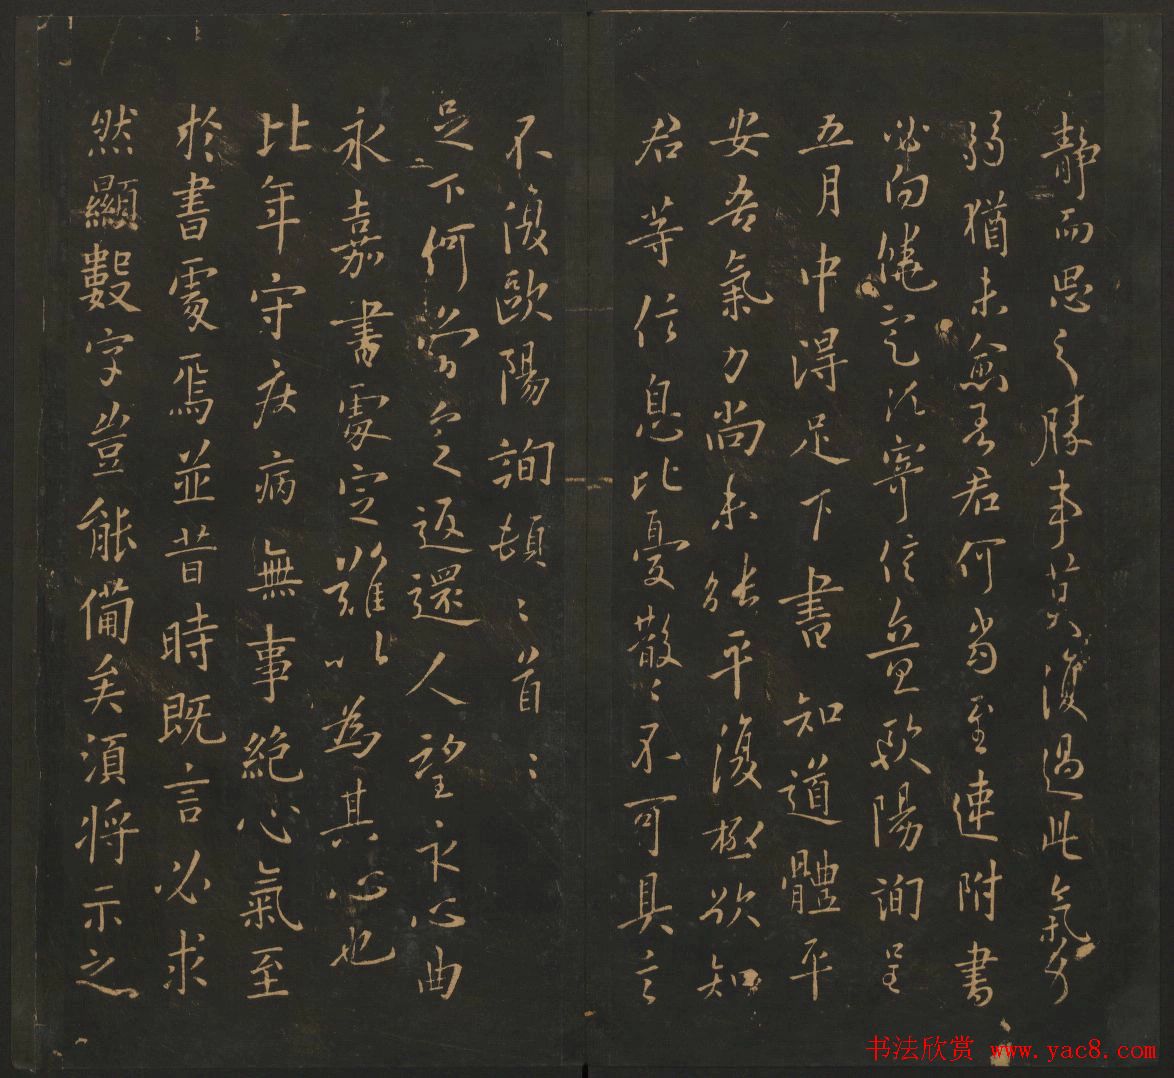 靜而思之勝事莫復過此氣力
弱猶未愈吾君何當至速附書
必向饒定寄信歐陽詢呈
五月中得足下書知道體平
安吾氣力尚未能平復極欲知
君等信息比憂散〻不可具言
不復歐陽詢頓〻首〻
足〻下何當定返還人望永心曲
永嘉書處定難以為其心也
比年守疾病無事絕心氣至
於書處焉並昔時既言必求
然顯數字豈能備矣須將示之
书法欣赏 www.yac8.com